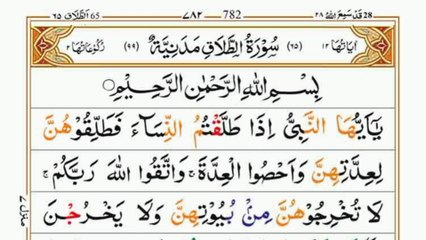 قَدْ سَمِعَ اللّٰهُ ٢٨ 28 782 ٧٨٢ 65 اَلطَّلَاق ٦٥
اٰيَاتُهَا ١٢ (٦٥) سُوْرَةُ الطَّلَاقِ مَدَنِيَّةٌ (٩٩) رُكُوْعَاتُهَا ٢
بِسْمِ اللّٰهِ الرَّحْمٰنِ الرَّحِيْمِ
يٰۤاَيُّهَا النَّبِيُّ اِذَا طَلَّقْتُمُ النِّسَآءَ فَطَلِّقُوْهُنَّ
لِعِدَّتِهِنَّ وَاَحْصُوا الْعِدَّةَ ۚ وَاتَّقُوا اللّٰهَ رَبَّكُمْ ۚ
لَا تُخْرِجُوْهُنَّ مِنْۢ بُيُوْتِهِنَّ وَلَا يَخْرُجْنَ
منزل ٧